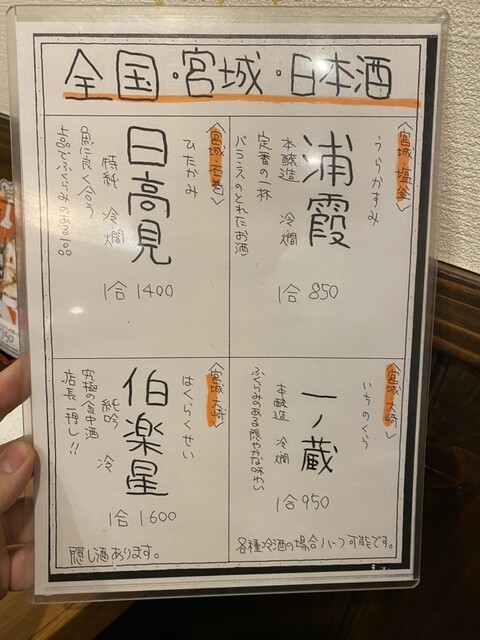 全国・宮城・日本酒
〈宮城・塩釜〉
うらかすみ
浦霞
本醸造 冷 燗
定番の一杯
バランスのとれたお酒
1合 850
〈宮城・石巻〉
ひたかみ
日高見
特純 冷 燗
魚に良く合う
上品でふくらみのある
1合 1400
〈宮城 大崎〉
いちのくら
一ノ蔵
本醸造 冷 燗
ふくらみのある穏やかな味わい
1合 950
〈宮城 大崎〉
はくらくせい
伯楽星
純吟 冷
究極の食中酒
店長一押し!!
1合 1600
隠し酒あります。
各種冷酒の場合ハーフ可能です。